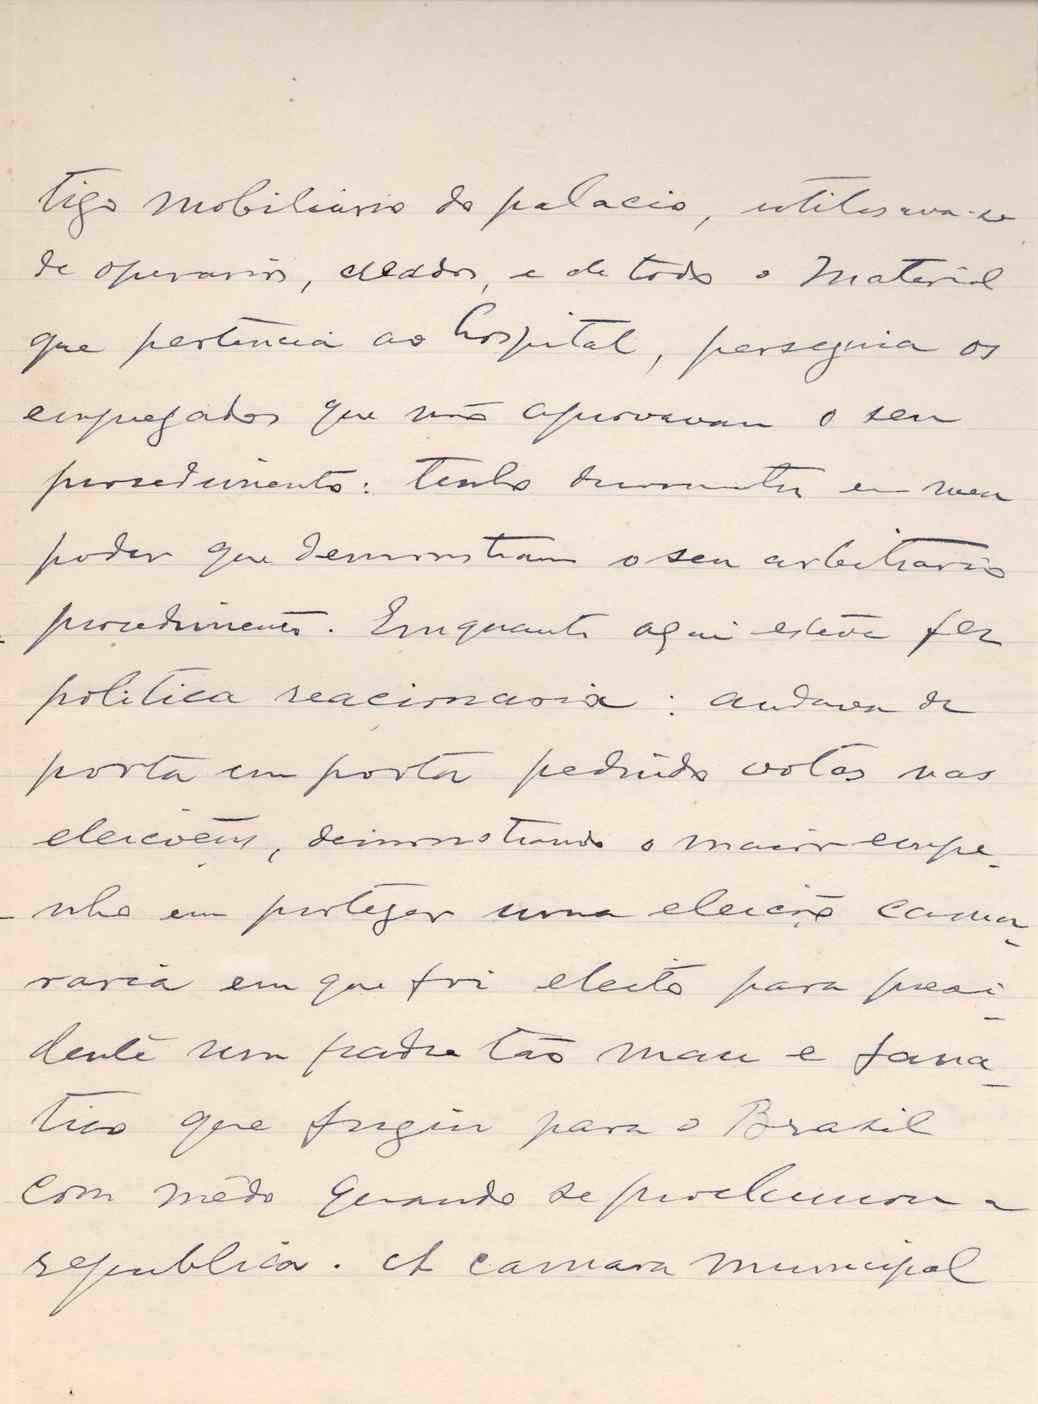 tigo mobiliario do palacio, utilisava-se
de operarios, creados, e de todo o material
que pertencia ao hospital, perseguia os
empregados que não aprovavam o seu
procedimento: tenho documentos em meu
poder que demonstram o seu arbitrario
procedimento. Emquanto aqui esteve fez
politica reacionaria: andava de
porta em porta pedindo votos nas
eleições, demonstrando o maior empe-
nho em proteger uma eleição cama-
raria em que foi eleito para presi-
dente um padre tão mau e fana-
tico que fugiu para o Brasil
com mêdo quando se proclamou a
republica. A camara municipal